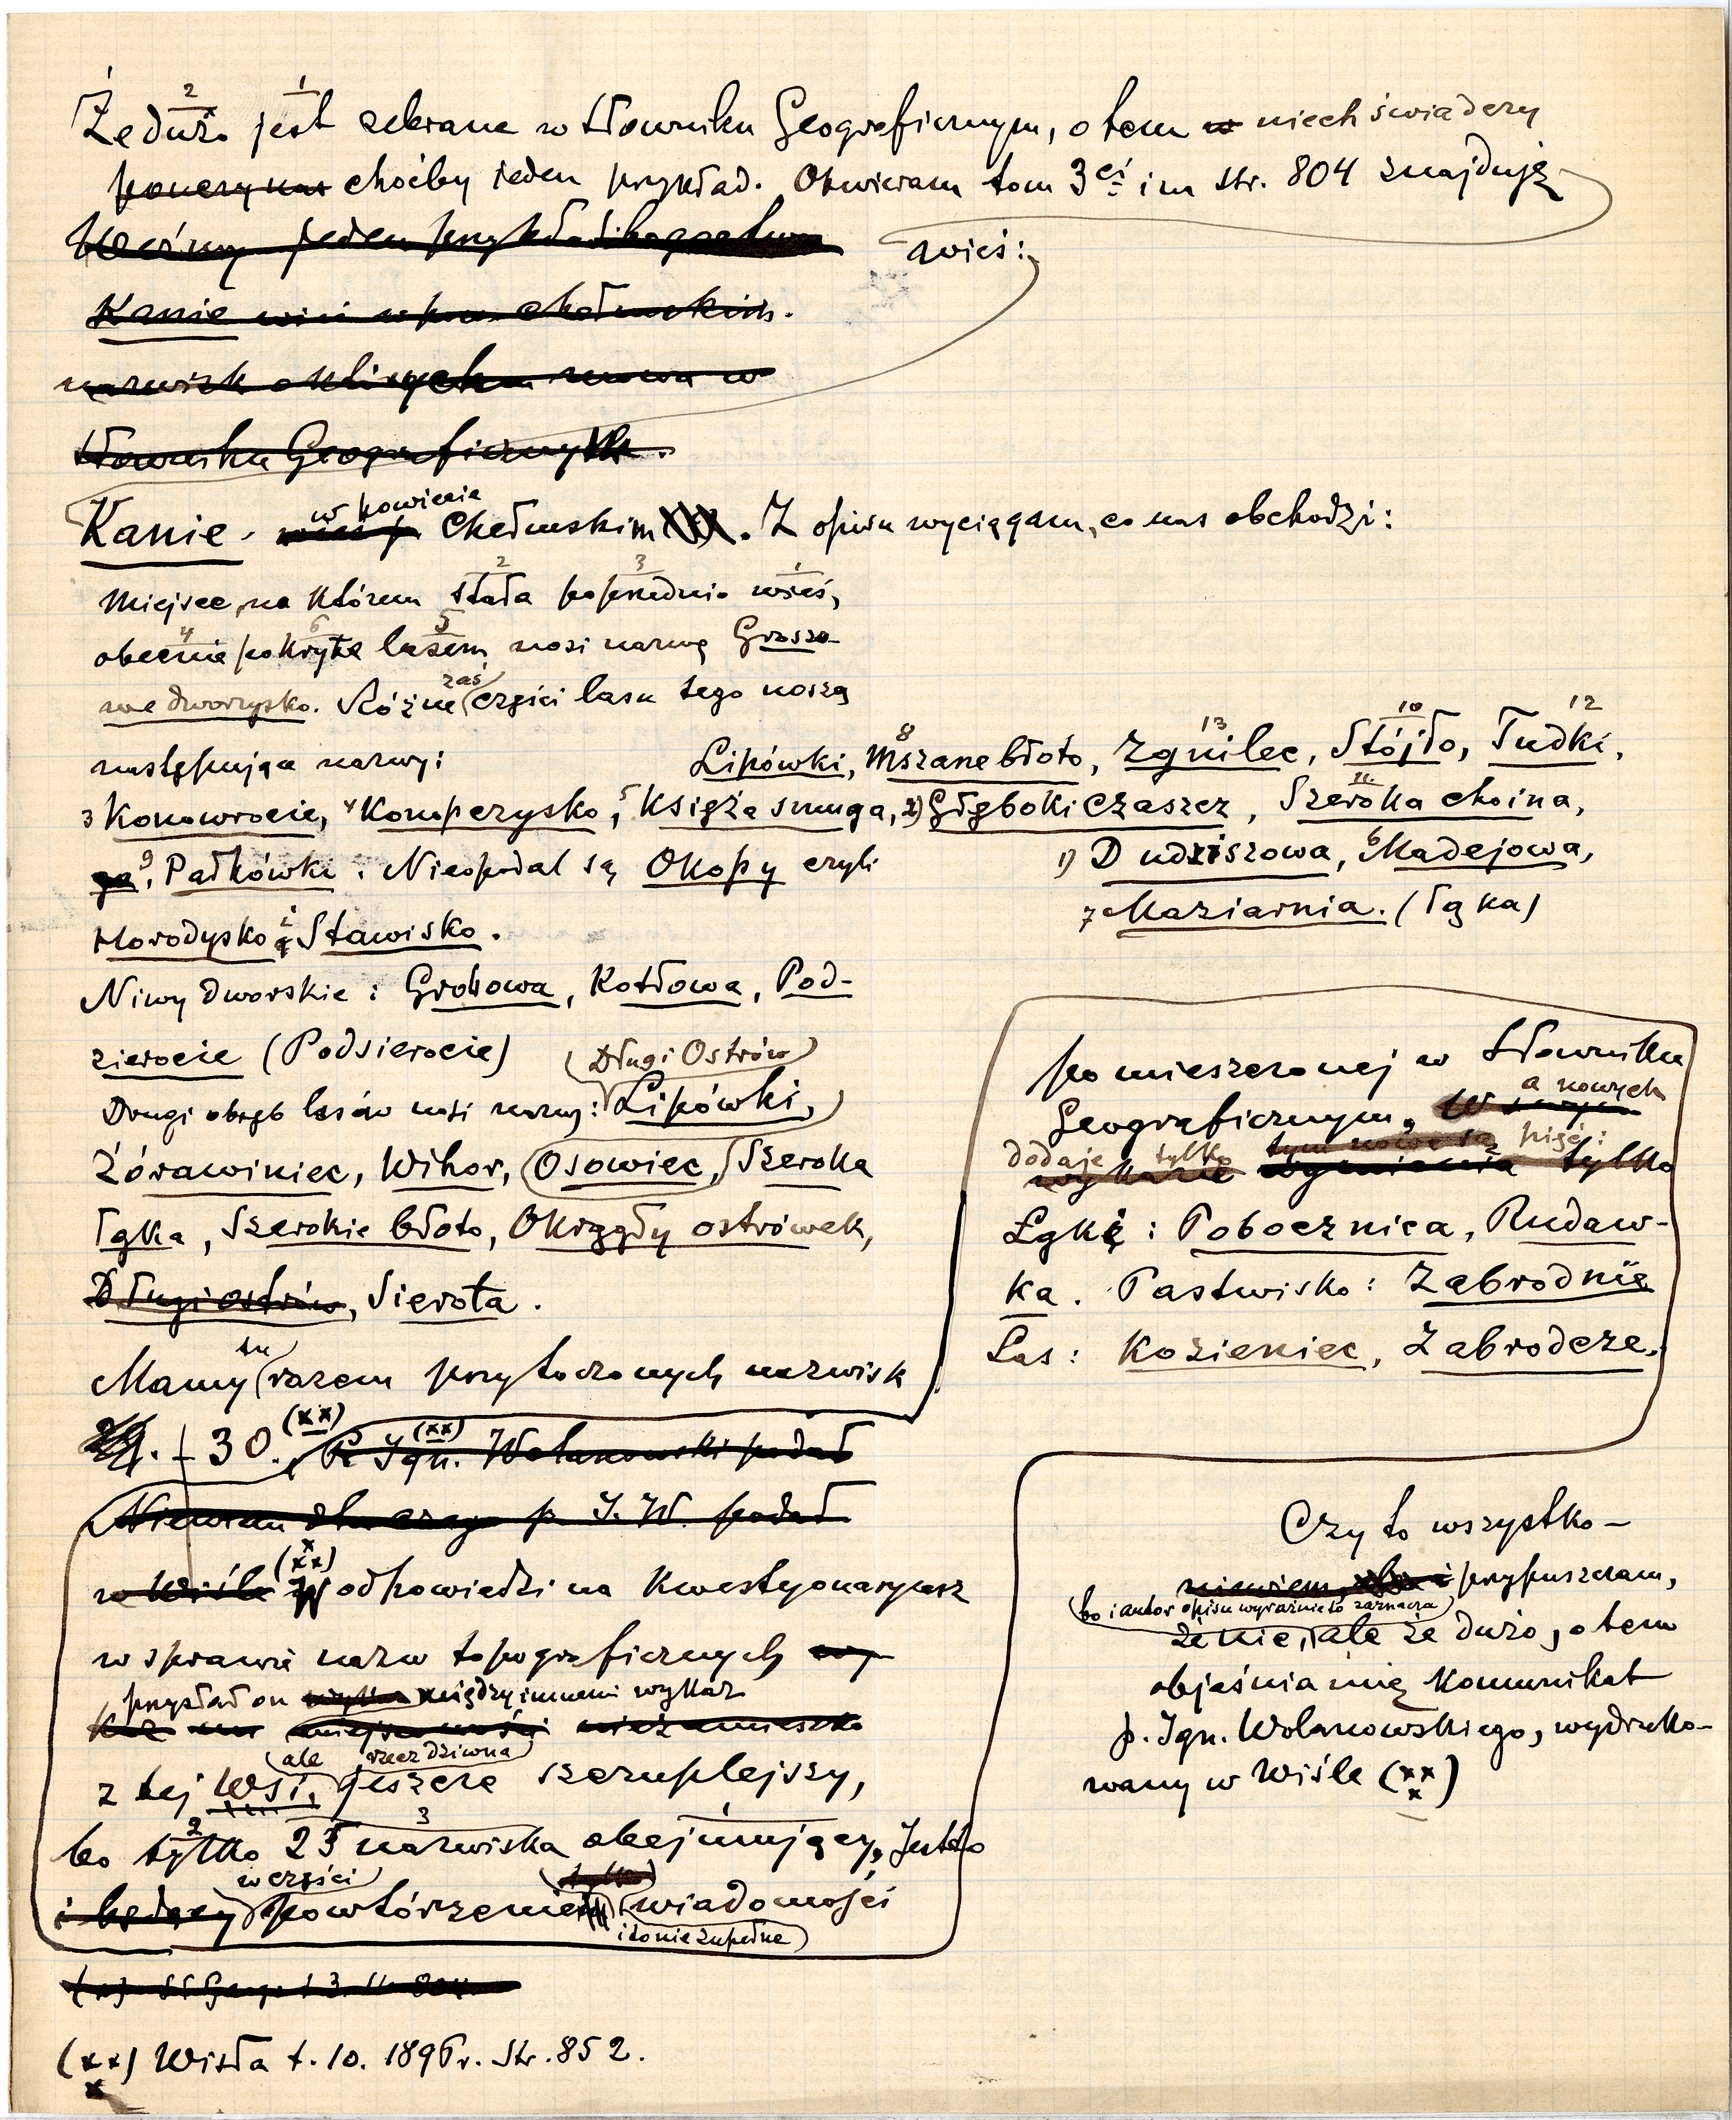 Że dużo jest zebrane w Słowniku Geograficznym, o tem niech świadczy
choćby jeden przykład. Otwieram tom 3ci i na str. 804 znajduję
wieś:
Kanie wieś w pow. chełmskim.
nazwisk okolicznych mowa w
Słowniku Geograficznym.
Kanie w powiecie Chełmskim. Z opisu wyciągam, co nas obchodzi:
Miejsce, na którem stała poprzednio wieś,
obecnie pokryte lasem, nosi nazwę Groszo-
we dworzysko. Różne zaś części lasu tego noszą
następujące nazwy:
Lipówki, 8 Mszane błoto, 13 Zgnilec, 10 Stójło, 12 Tudki,
3 Konowrocie, 4 Konopczysko, 5 Księża smuga, 2) Głęboki Czaszcz, 11 Szeroka choina,
9 Pałkówki. Nieopodal są Okopy czyli
1) Dudziszowa, 6 Madejowa,
7 Maziarnia. (łąka)
Horodysko i Stawisko.
Niwy dworskie: Grobowa, Kotłowa, Pod-
zierocie (Podsierocie)
Długi Ostrów
Drugi obręb lasów nosi nazwy: Lipówki,
Żórawiniec, Wihor, Osowiec, Szeroka
łąka, Szerokie błoto, Okrągły ostrówek,
Długi ostrów, Sierota.
Mamy tu razem przytoczonych nazwisk
30. (xx) P. Ign. Wolanowski podał
Niewiem dla czego p. I. W. podał
w Wiśle (xxx) W odpowiedzi na Kwestyonaryusz
w sprawie nazw topograficznych
przysłał on między innemi wykaz
z tej wsi, ale rzecz dziwna jeszcze szczuplejszy,
bo tylko 23 nazwiska obejmujący. Jest to
i będący w części powtórzeniem wiadomości
i to nie zupełne
pomieszczonej w Słowniku
Geograficznym, a nowych
dodaje tylko pięć:
Łąkę: Pobocznica, Rudaw-
ka. Pastwisko: Zabrodnie
Las: Kozieniec, Zabrodcze.
Czy to wszystko –
przypuszczam,
bo i autor opisu wyraźnie to zaznacza
że nie, ale że dużo, o tem
objaśnia mię Komunikat
p. Ign. Wolanowskiego, wydruko-
wany w Wiśle (xxx)
(xxx) Wisła t. 10. 1896 r. Str. 852.